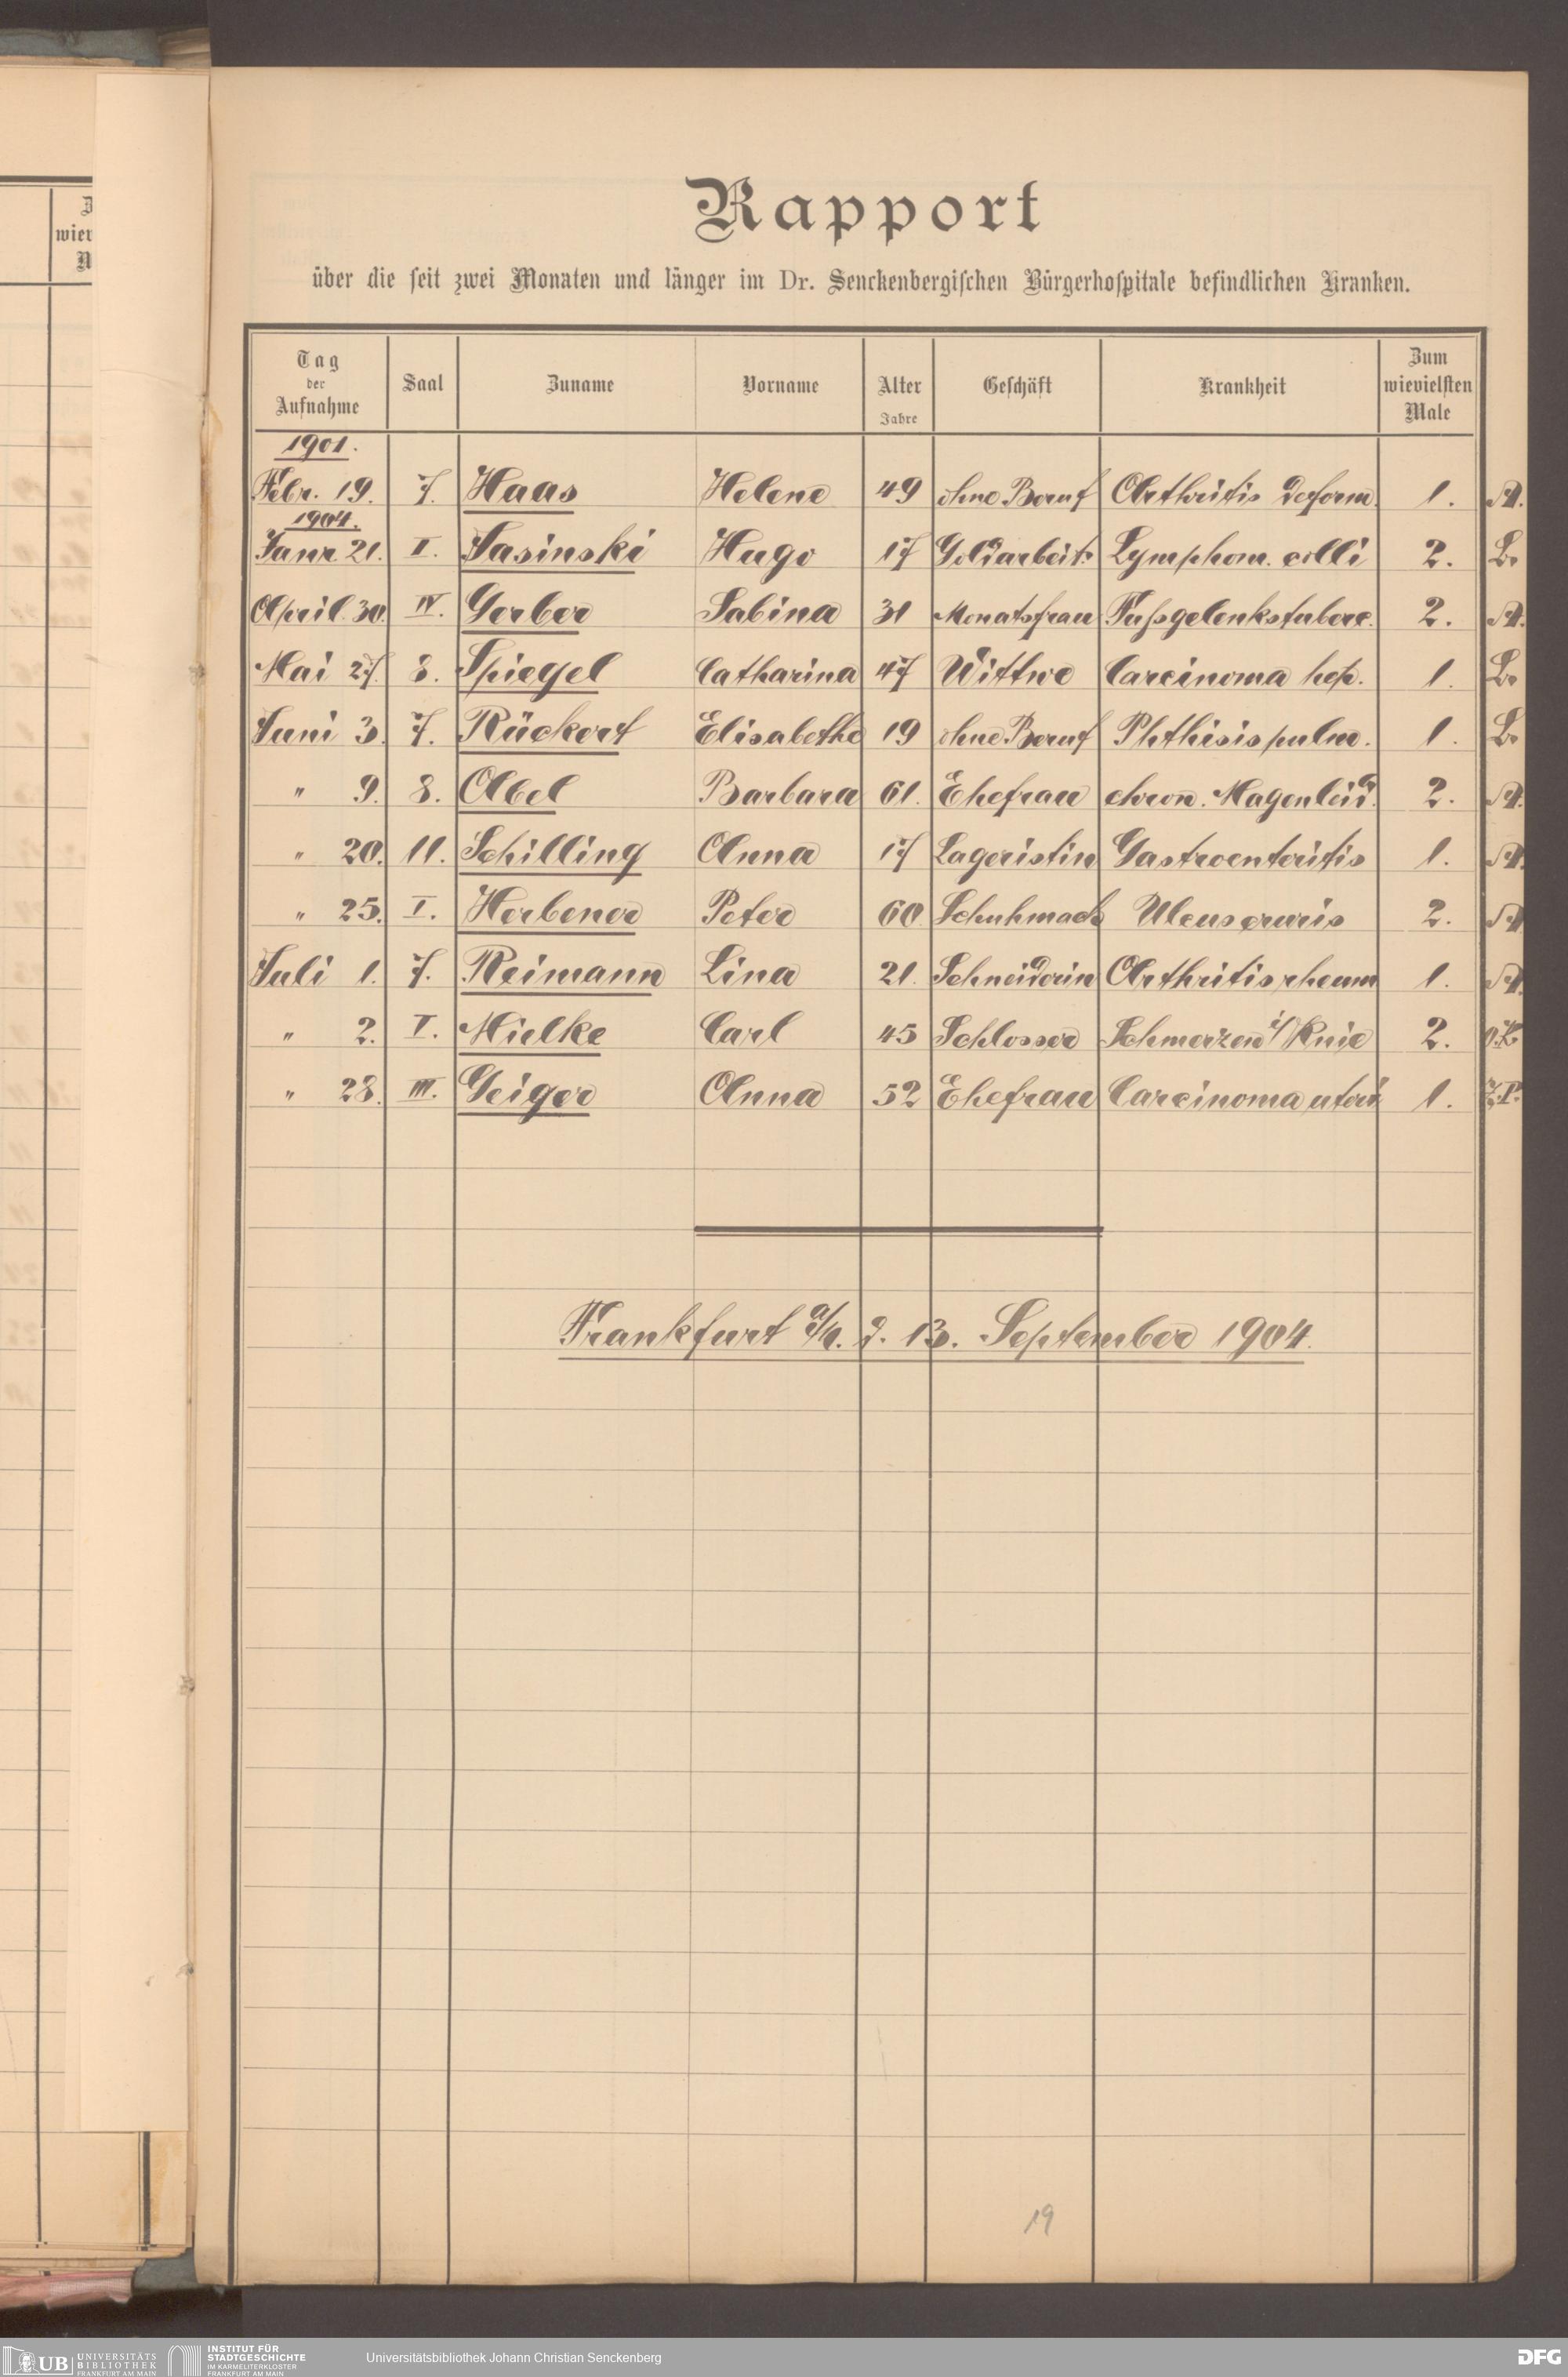 Rapport
über die seit zwei Monaten und länger im Dr. Senckenbergischen Bürgerhospitale befindlichen Kranken.
Tag der Aufnahme Saal Zuname Vorname Alter Jahre Geschäft Krankheit Zum wievielsten Male
1901.
Febr. 19. 7. Haas Helene 49 ohne Beruf Arthritis deform. 1. A.
1904.
Janr. 21. I. Jasinski Hugo 17 Goldarbeitr. Lymphom. colli 2. L.
April 30. IV. Gerber Sabina 31 Monatsfrau Fußgelenkstuberc. 2. A.
Mai 27. 8. Spiegel Catharina 47 Wittwe Carcinoma hep. 1. L.
Juni 3. 7. Rückert Elisabethe 19 ohne Beruf Phthisis pulm. 1. L.
" 9. 8. Abel Barbara 61. Ehefrau chron. Magenleid. 2. A.
" 20. 11. Schilling Anna 17 Lageristin Gastroenteritis 1. A.
" 25. I. Herbener Peter 60 Schuhmach Ulcus cruris 2. A
Juli 1. 7. Reimann Lina 21. Schneiderin Arthritis rheum 1. A.
" 2. I. Mielke Carl 45 Schlosser Schmerzen i/ Knie 2.
" 28. III. Geiger Anna 52 Ehefrau Carcinoma uteri 1.
Frankfurt a/M. d. 13. September 1904.
19
UB UNIVERSITÄTS BIBLIOTHEK FRANKFURT AM MAIN
INSTITUT FÜR STADTGESCHICHTE IM KARMELITERKLOSTER FRANKFURT AM MAIN
Universitätsbibliothek Johann Christian Senckenberg
DFG